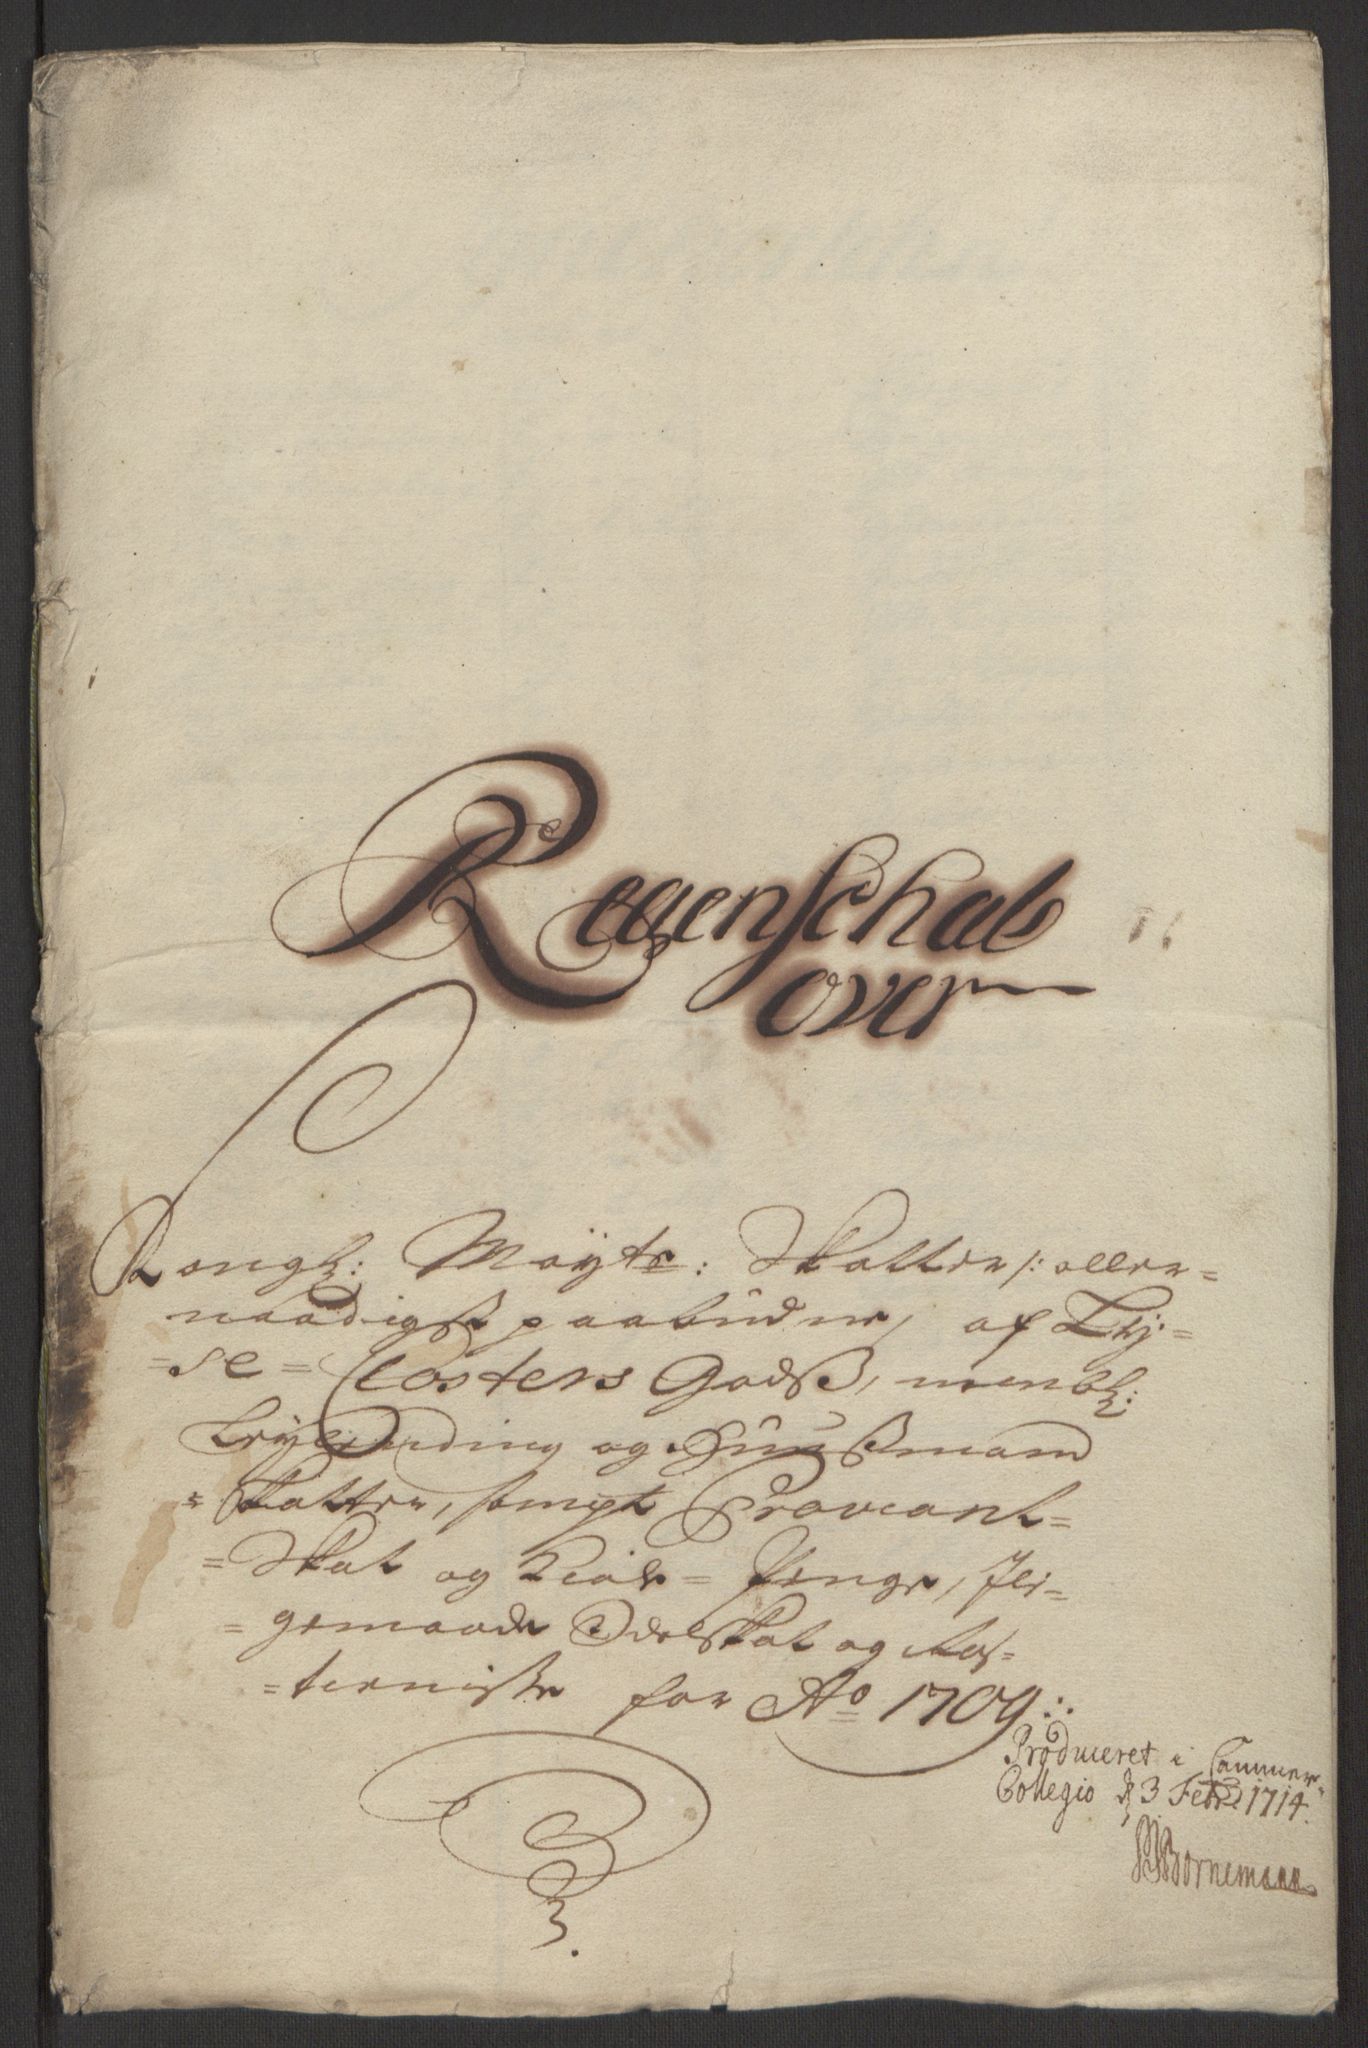 Regenschab
over
Kongl: Mayts: Skatter /: aller=
naadigst paabudne, af Lÿ=
=se= Closters Godß, menbl:
Leylending og Huußmand
=Skatter, sampt Proviant=
=Skat og Kiøls= Penge, Jli=
=gemaade Odelskat og Ros=
=tienniste for Ao 1709 :
Produceret i Cammer=
Collegio d 3 Febr: 1714.
Bornemann
3.